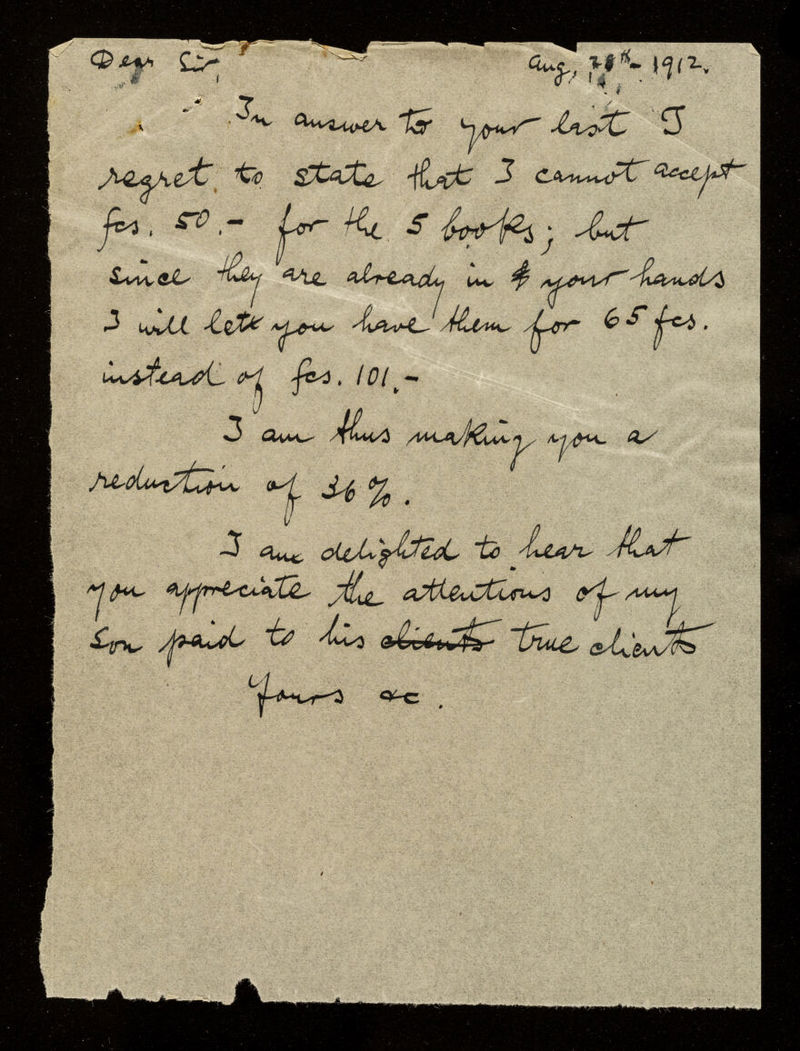 Dear Sir, Aug, - 1912.
In answer to your last I
regret to state that I cannot accept
fcs. 50.- for the 5 books; but
since they are already in your hands
I will let you have them for 65 fcs.
instead of fcs. 101.-
I am thus making you a
reduction of 36%.
I am delighted to hear that
you appreciate the attentions of my
son paid to his clients true clients
Yours &c.